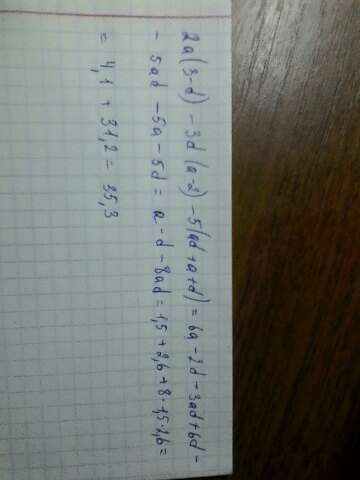 2a(3-d) - 3d(a-2) - 5(ad+a+d) = 6a - 2d - 3ad + 6d -
- 5ad - 5a - 5d = a - d - 8ad = 1,5 + 2,6 + 8·1,5·2,6 =
= 4,1 + 31,2 = 35,3